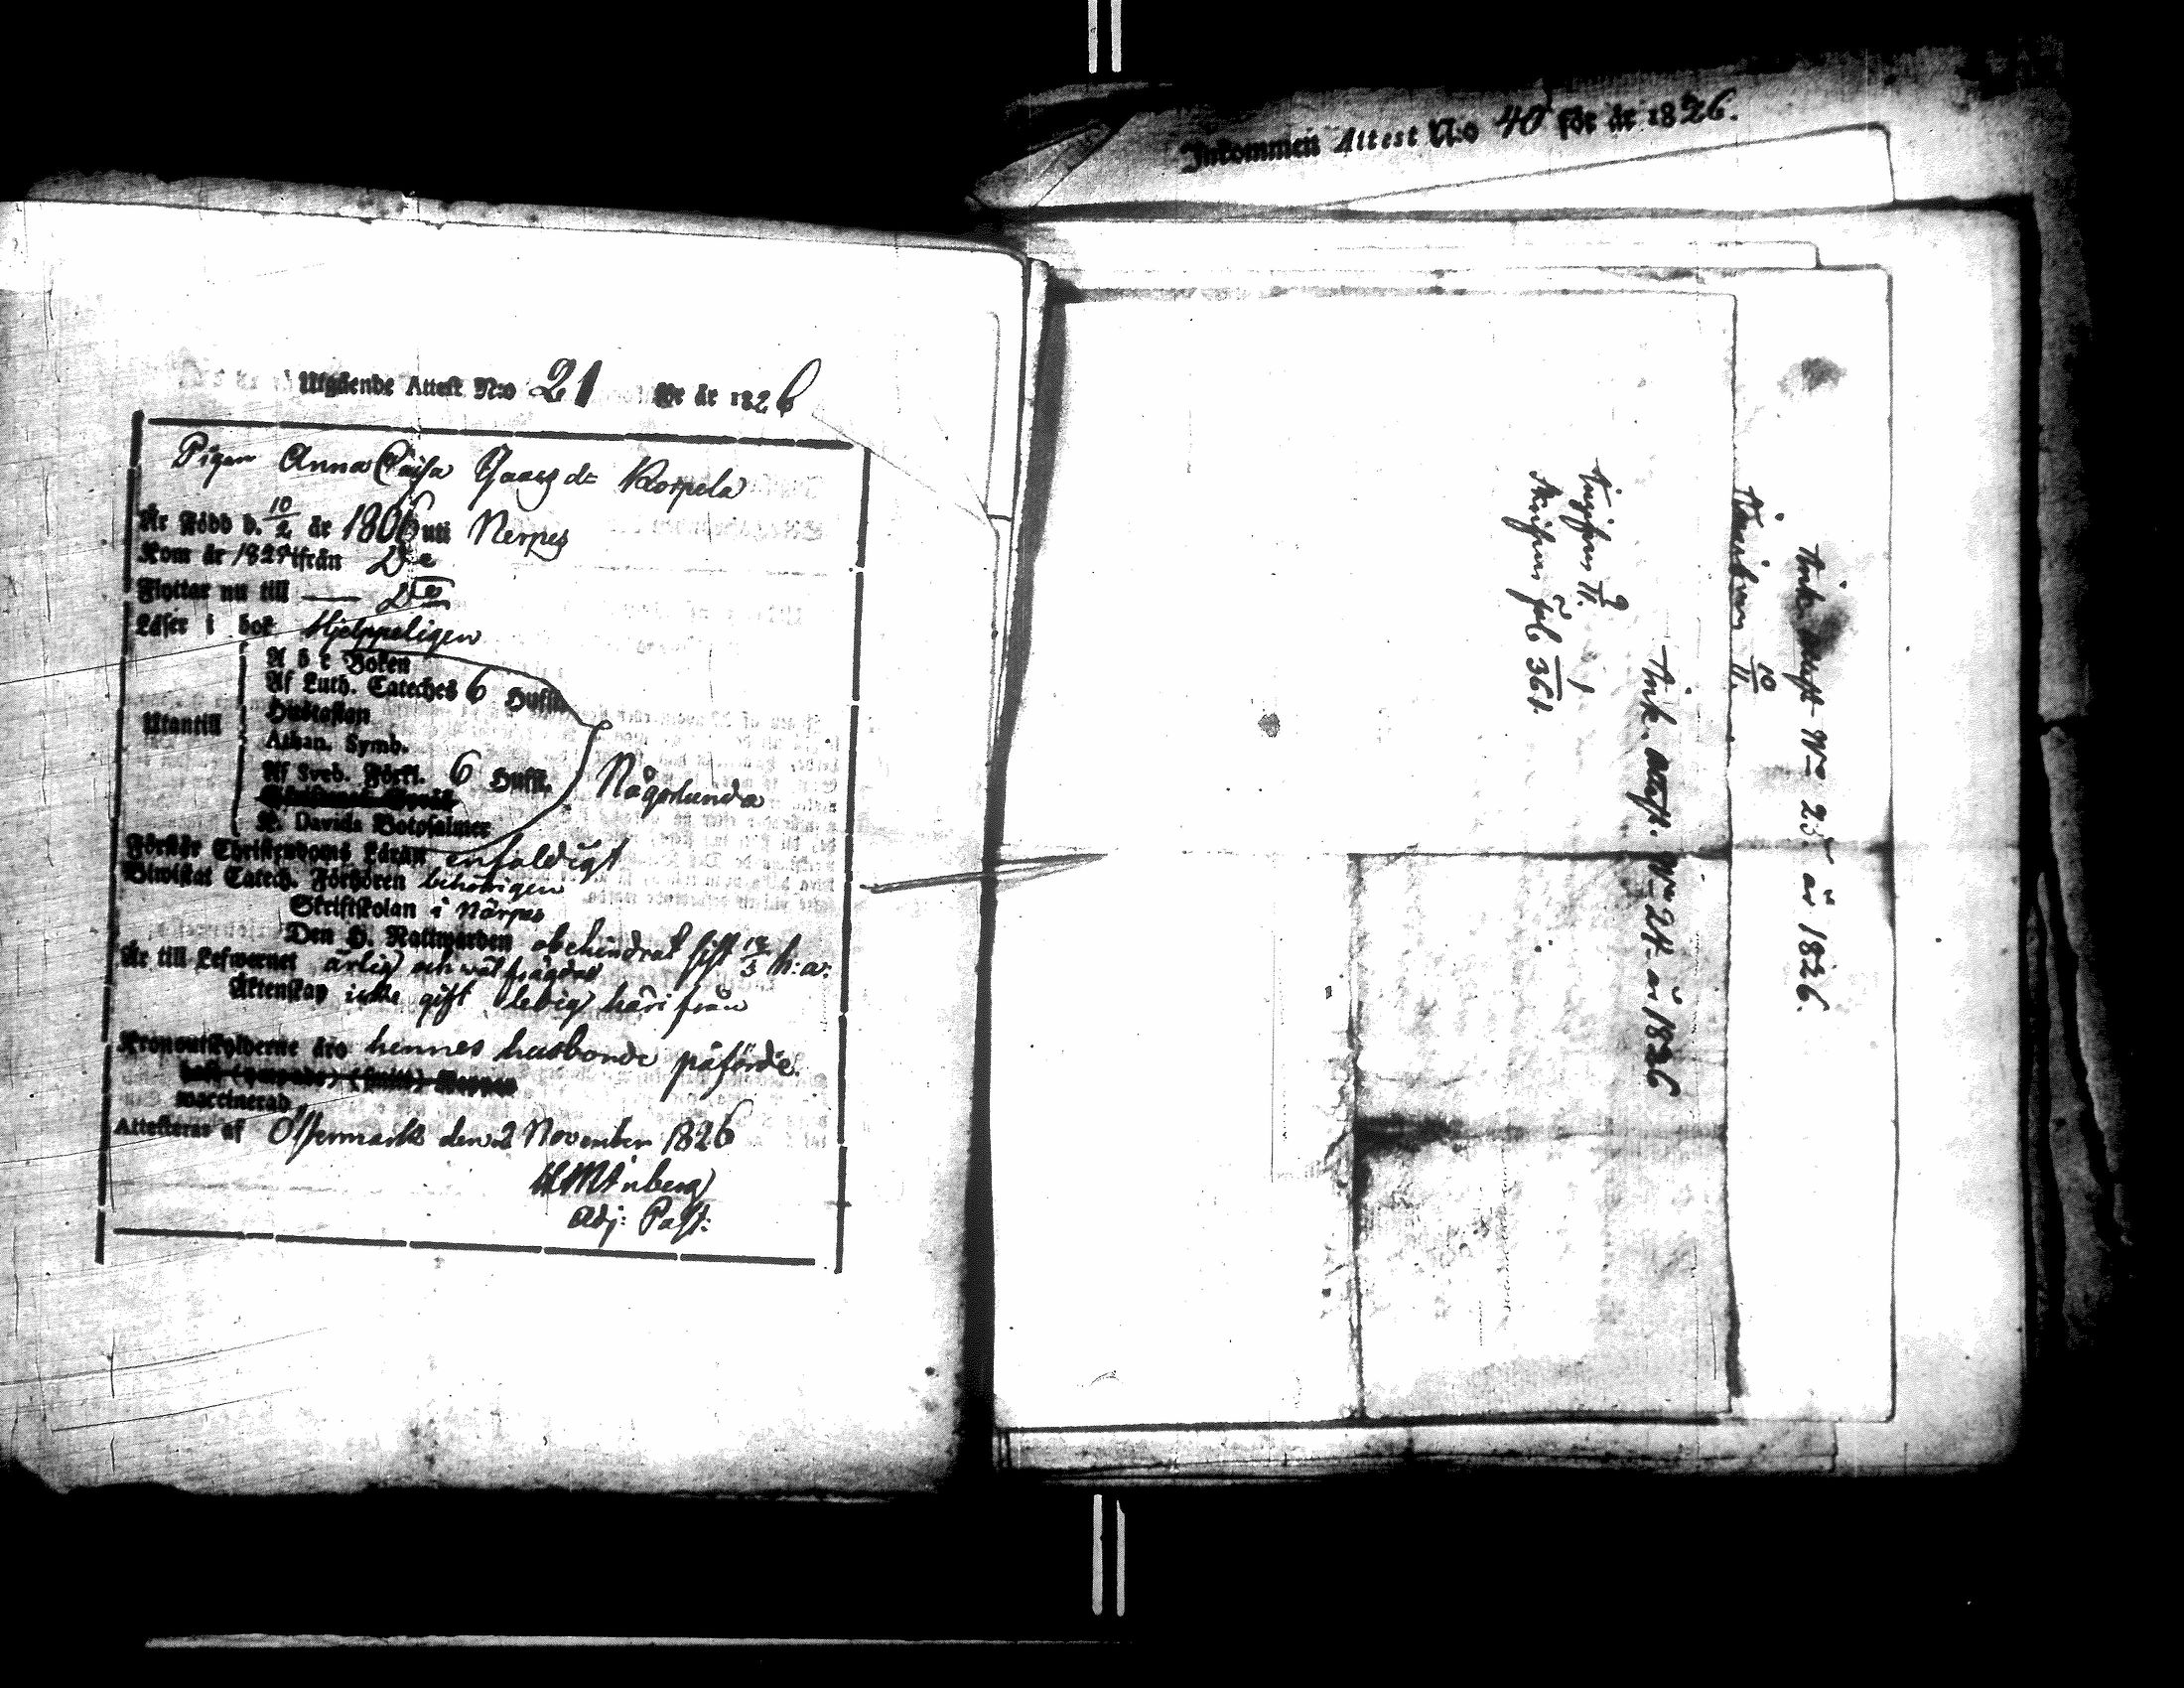 Utgående Attest N:o 21 för år 1826
Pigan Anna Caisa Isaacsdr Korpela
Är Född d. 10/2 år 1806 uti Nerpes
Kom år 1825 ifrån Do
Flyttar nu till — Do
Läser i bok Hjelppeligen
A b c Boken
Af Luth. Cateches 6 Hufst.
Hustaflan
Utantill
Athan. Symb.
Af Sveb. Förkl. 6 Hufst. Någorlunda
K. Davids Botpsalmer
Förstår Christendoms Läran enfaldigt
Biwistat Catech. Förhören behörigen
Skriftskolan i Närpes
Den H. Nattwarden obehindrat sist 12/3 h: a:
Är till Lefwernet ärlig och wälfrägdad
Äktenskap icke gift ledig härifrån
Kronoutskylderne äro hennes husbonde påförde.
waccinerad
Attesteras af Östermark den 2 November 1826
Adj: Past:
Inkommen Attest N:o 40 för år 1826.
Ink. attest No 25 år 1826.
10/11.
Ink. attest. No 24 år 1826
9/11.
fol 361.